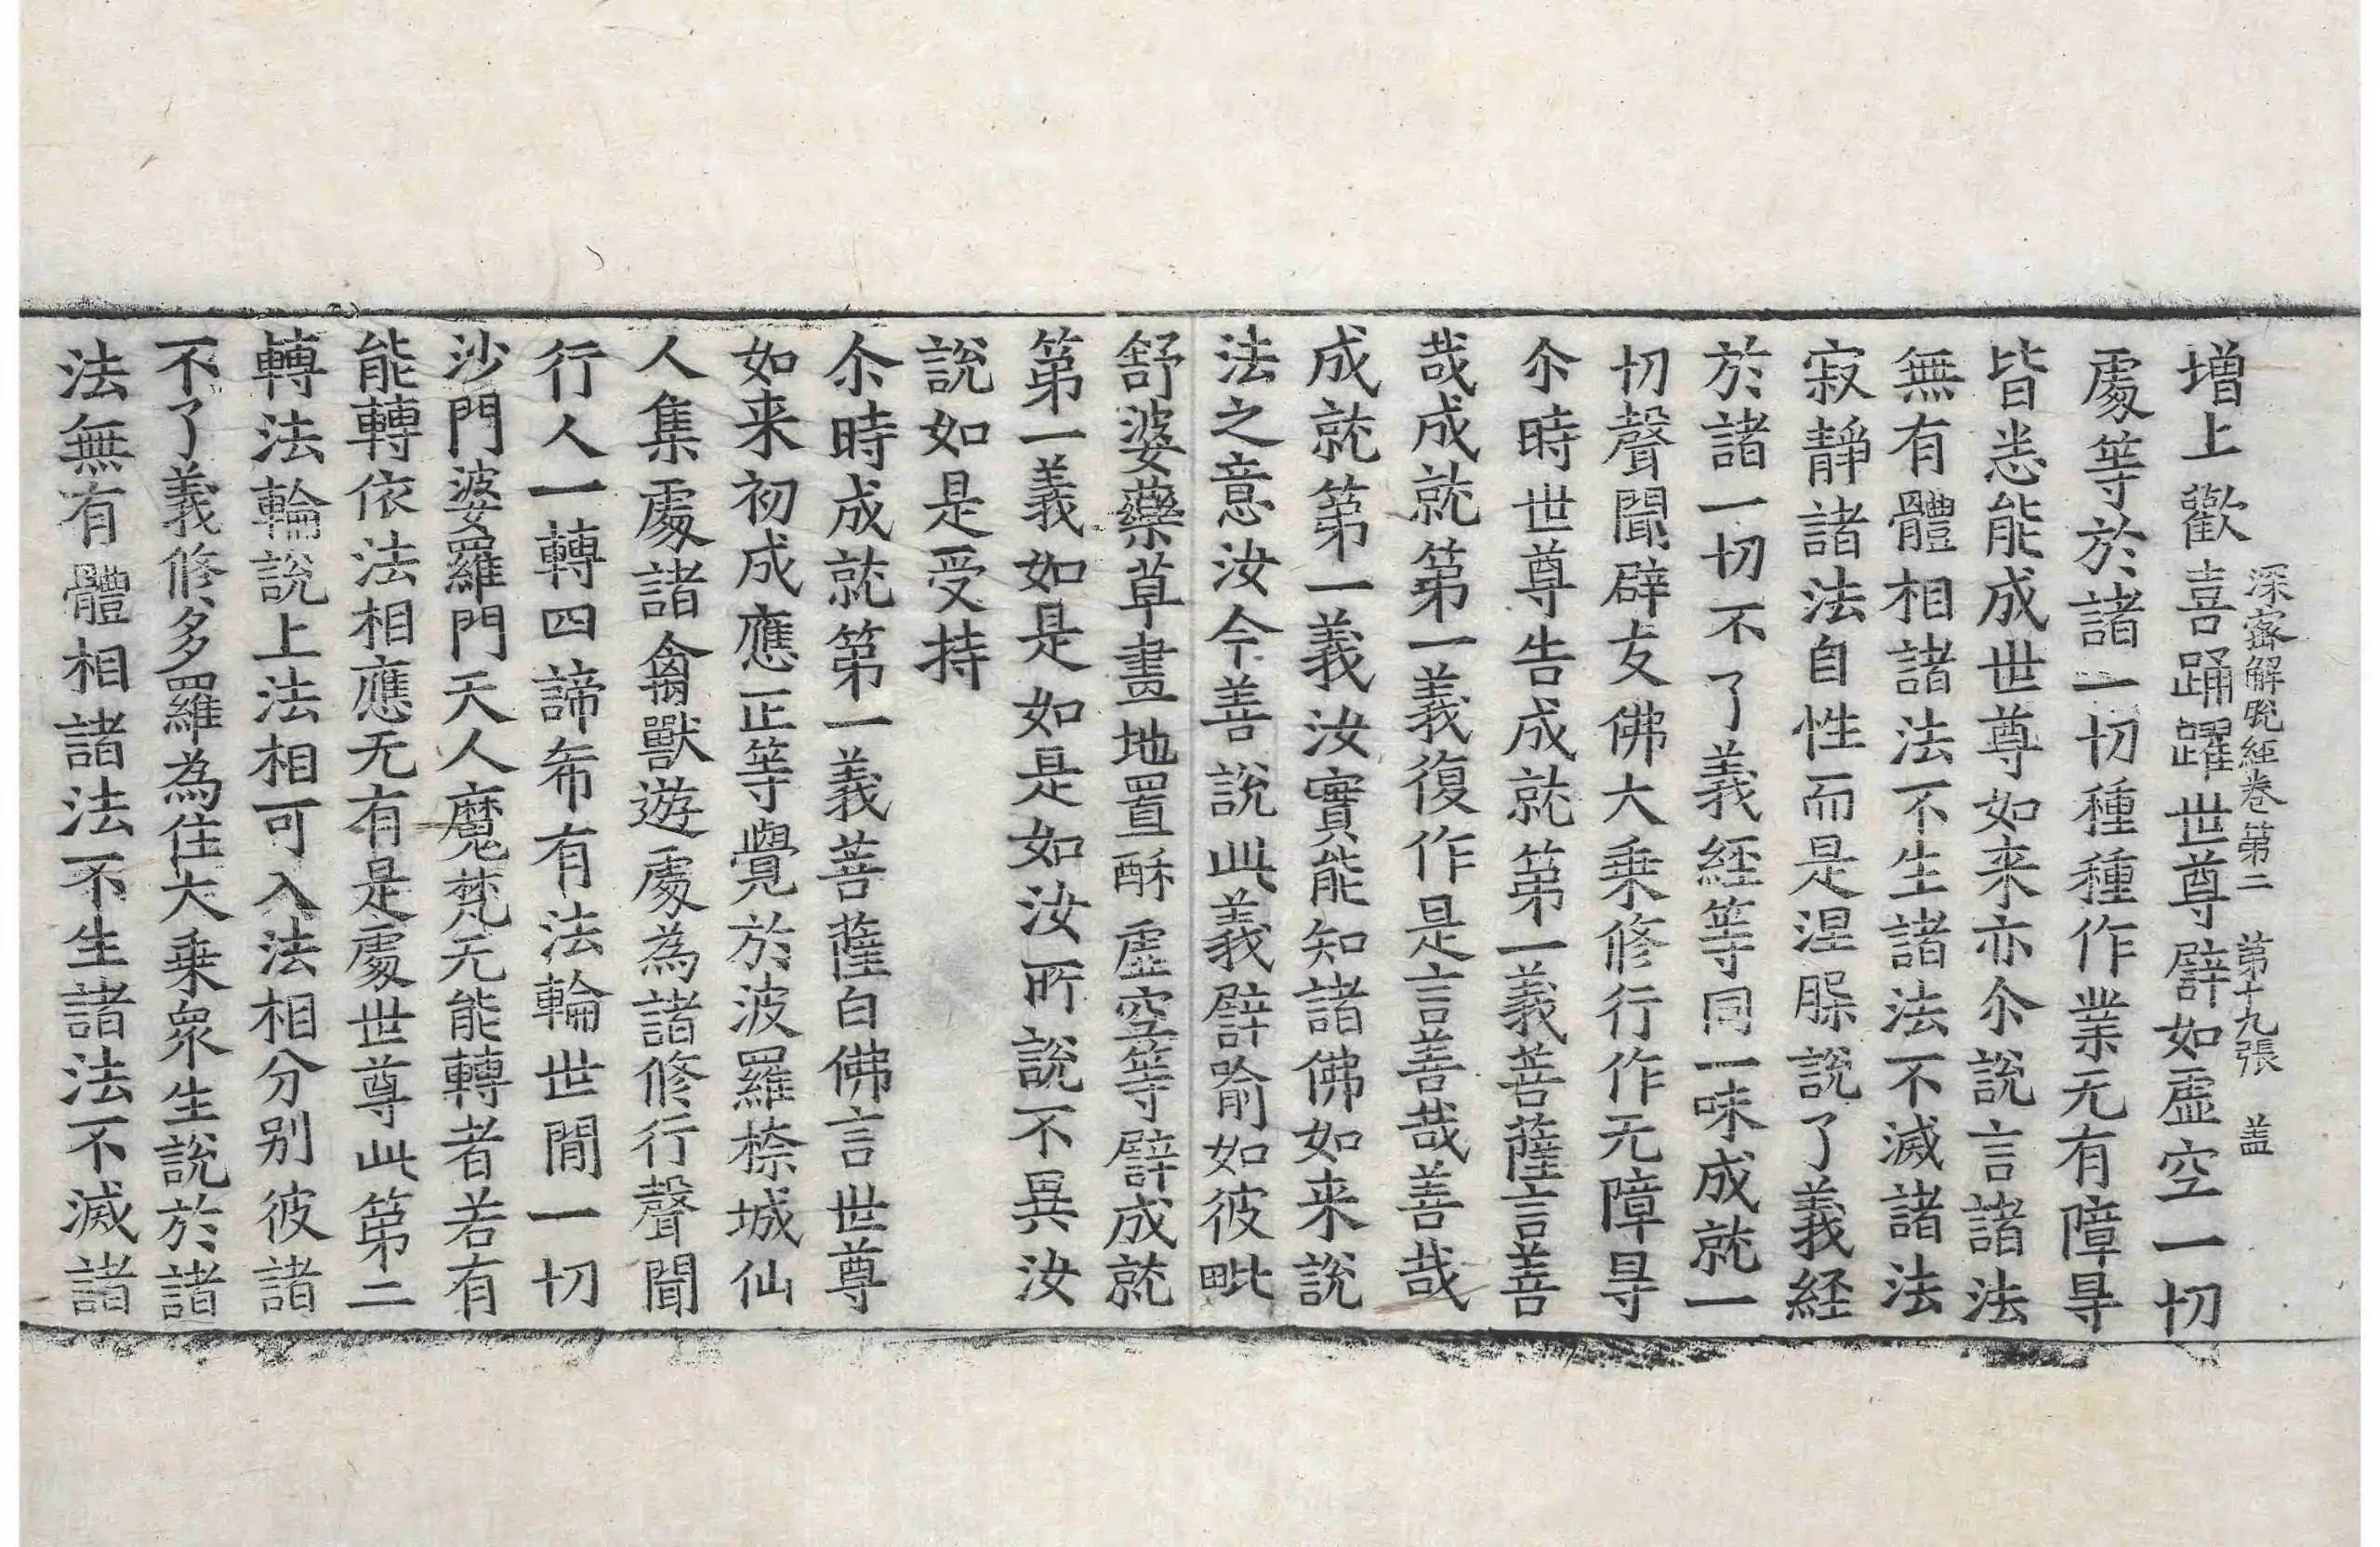 深密解脫經卷第二　第十九張　盖
增上歡喜踊躍世尊譬如虛空一切
處等於諸一切種種作業无有障㝵
皆悉能成世尊如来亦尒說言諸法
無有體相諸法不生諸法不滅諸法
寂靜諸法自性而是涅槃說了義經
於諸一切不了義經等同一味成就一
切聲聞辟支佛大乗修行作无障㝵
尒時世尊告成就第一義菩薩言善
哉成就第一義復作是言善哉善哉
成就第一義汝實能知諸佛如来說
法之意汝今善說此義譬喻如彼毗
舒婆藥草畫地置酥虛空等譬成就
第一義如是如是如汝所說不異汝
說如是受持
尒時成就第一義菩薩白佛言世尊
如来初成應正等覺於波羅㮈城仙
人集處諸禽獸遊處為諸修行聲聞
行人一轉四諦希有法輪世間一切
沙門婆羅門天人魔梵无能轉者若有
能轉依法相應无有是處世尊此第二
轉法輪說上法相可入法相分别彼諸
不了義修多羅為住大乗衆生說於諸
法無有體相諸法不生諸法不滅諸